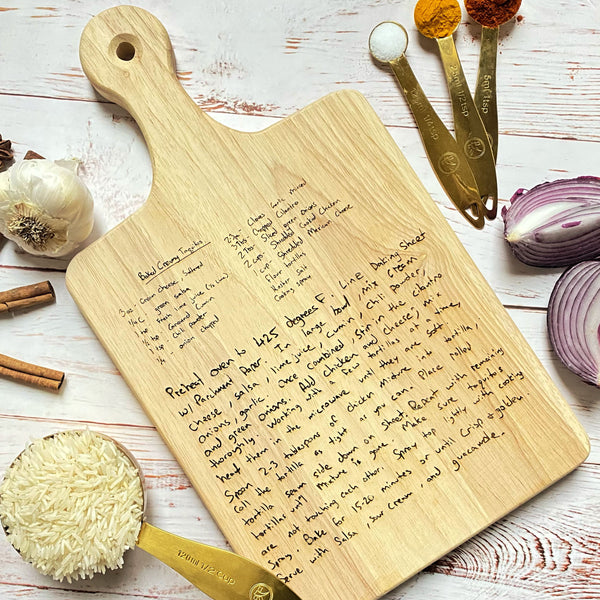 Baked Creamy Taquitos
3 oz cream cheese softened
1/4 c green salsa
green onions
Chopped Cilantro
2 cups Shredded Cooked Chicken
1 cup shredded Mexican Cheese
Flour tortillas
Kosher Salt
Cooking spray
Preheat oven to 425 degrees F. Line Baking Sheet
w/ Parchment Paper. In large bowl, mix cream
cheese, salsa, lime juice, cumin, chili powder,
onions, garlic, once combined, stir in the cilantro
and green onions. Add chicken and cheese, mix
thoroughly. Working with a few tortillas at a time,
heat them in the microwave until they are soft.
Spoon 2-3 tablespoons of chicken mixture into tortilla,
roll the tortilla as tight as you can. Place rolled
tortilla seam side down on sheet. Repeat with remaining
tortillas until mixture is gone. Make sure taquitos
are not touching each other. Spray top lightly with cooking
spray. Bake for 15-20 minutes or until crisp & golden.
Serve with salsa, sour cream, and guacamole.
120ml 1/2 cup
5ml 1tsp